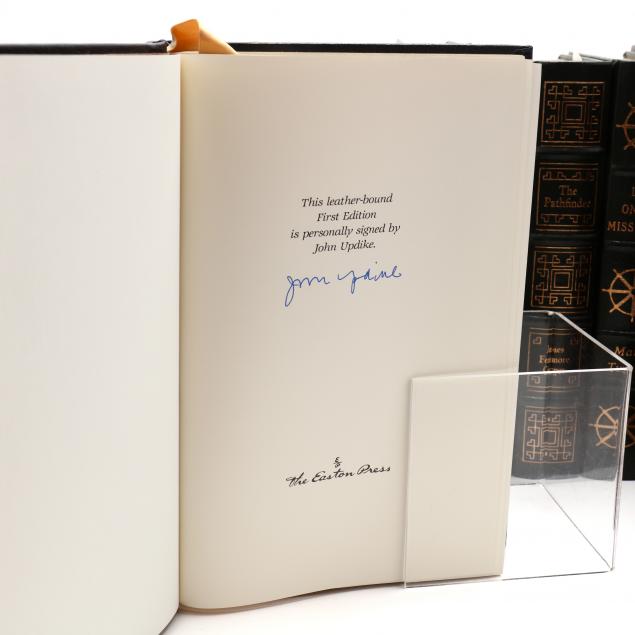 This leather-bound
First Edition
is personally signed by
John Updike.
John Updike
The Easton Press
The
Pathfinder
James
Fenimore
ON
MISS
Ma